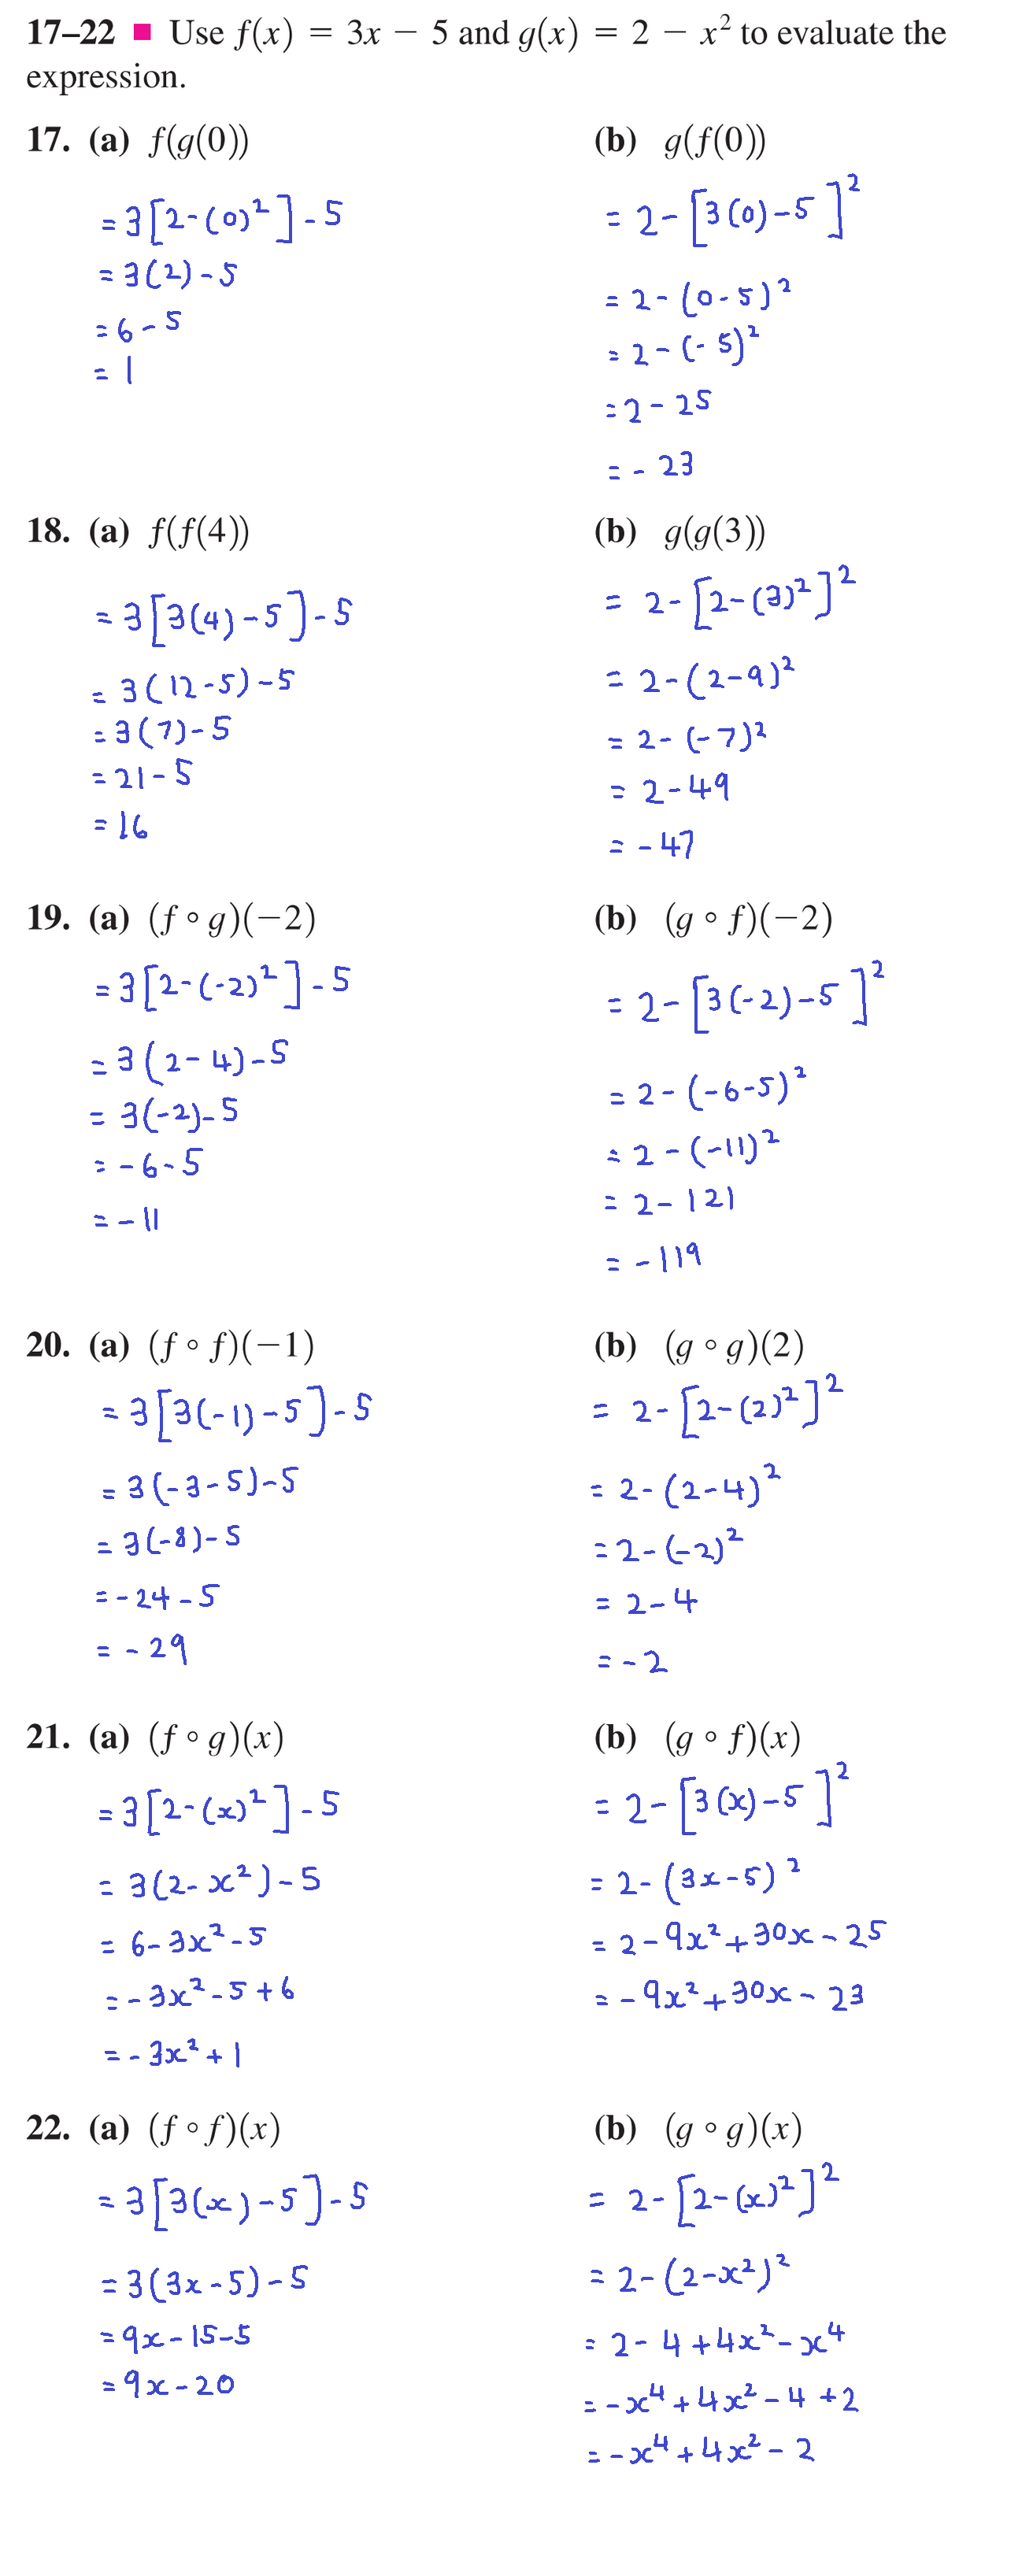 17–22 ■ Use f(x) = 3x − 5 and g(x) = 2 − x² to evaluate the
expression.
17. (a) f(g(0))
= 3[2-(0)²] - 5
= 3(2) - 5
= 6 - 5
= 1
(b) g(f(0))
= 2 - [3(0) - 5]²
= 2 - (0 - 5)²
= 2 - (- 5)²
= 2 - 25
= - 23
18. (a) f(f(4))
= 3[3(4) - 5] - 5
= 3(12 - 5) - 5
= 3(7) - 5
= 21 - 5
= 16
(b) g(g(3))
= 2 - [2 - (3)²]²
= 2 - (2 - 9)²
= 2 - (- 7)²
= 2 - 49
= - 47
19. (a) (f ∘ g)(−2)
= 3[2 - (-2)²] - 5
= 3(2 - 4) - 5
= 3(-2) - 5
= - 6 - 5
= - 11
(b) (g ∘ f)(−2)
= 2 - [3(-2) - 5]²
= 2 - (-6 - 5)²
= 2 - (-11)²
= 2 - 121
= - 119
20. (a) (f ∘ f)(−1)
= 3[3(-1) - 5] - 5
= 3(-3 - 5) - 5
= 3(-8) - 5
= - 24 - 5
= - 29
(b) (g ∘ g)(2)
= 2 - [2 - (2)²]²
= 2 - (2 - 4)²
= 2 - (-2)²
= 2 - 4
= - 2
21. (a) (f ∘ g)(x)
= 3[2 - (x)²] - 5
= 3(2 - x²) - 5
= 6 - 3x² - 5
= - 3x² - 5 + 6
= - 3x² + 1
(b) (g ∘ f)(x)
= 2 - [3(x) - 5]²
= 2 - (3x - 5)²
= 2 - 9x² + 30x - 25
= - 9x² + 30x - 23
22. (a) (f ∘ f)(x)
= 3[3(x) - 5] - 5
= 3(3x - 5) - 5
= 9x - 15 - 5
= 9x - 20
(b) (g ∘ g)(x)
= 2 - [2 - (x)²]²
= 2 - (2 - x²)²
= 2 - 4 + 4x² - x⁴
= - x⁴ + 4x² - 4 + 2
= - x⁴ + 4x² - 2